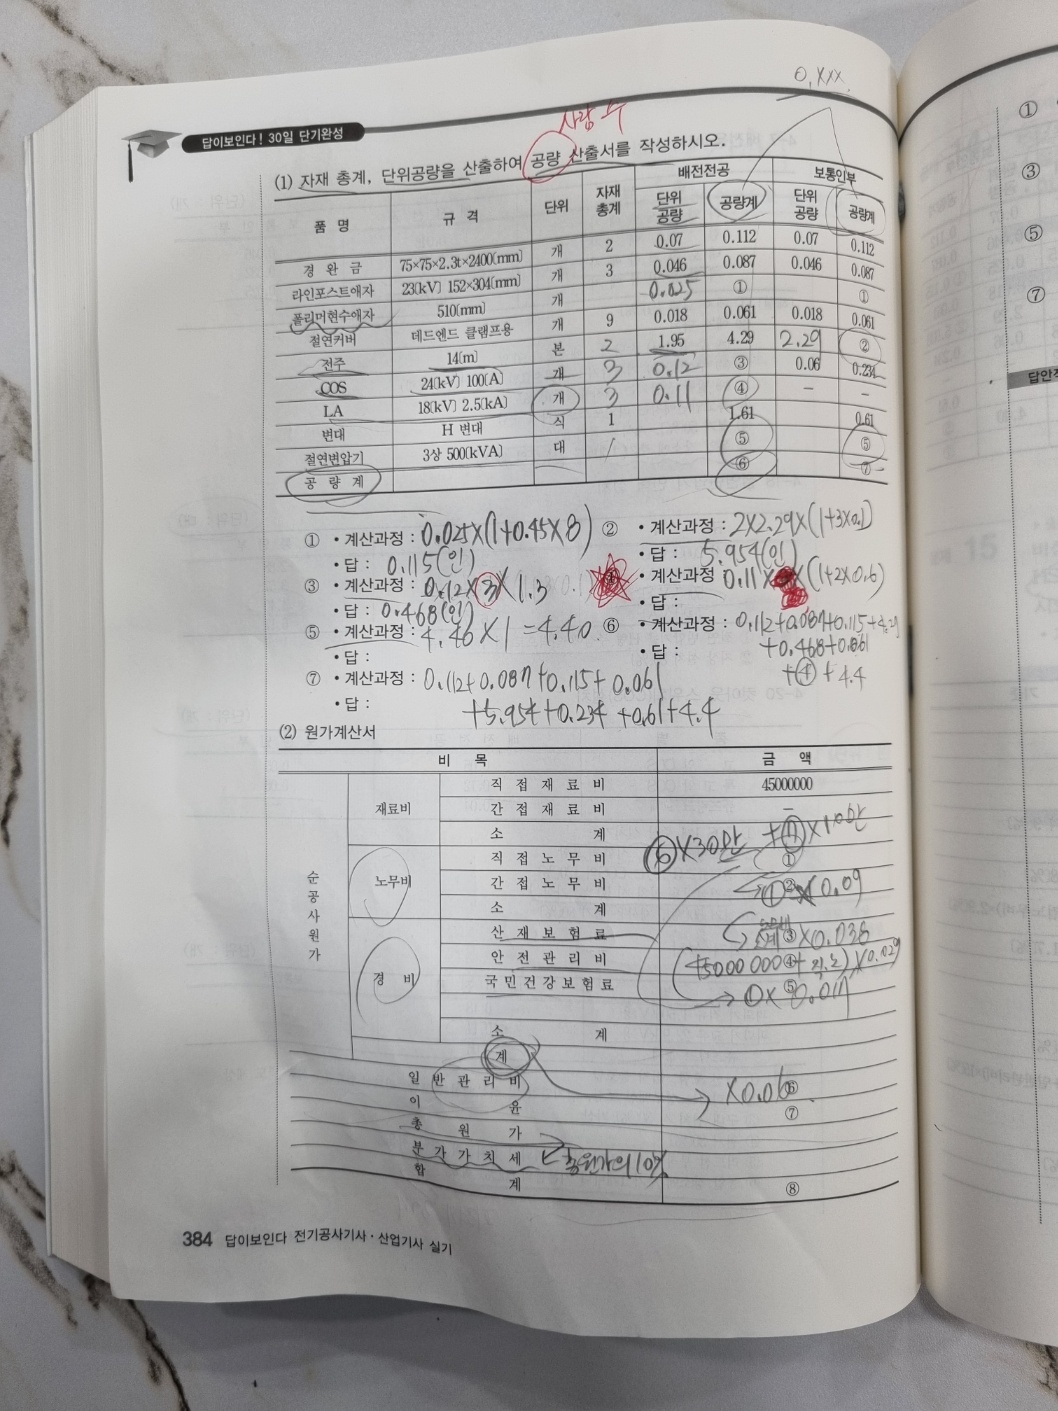 0.XXX.
답이보인다! 30일 단기완성
사람 수
(1) 자재 총계, 단위공량을 산출하여 공량 산출서를 작성하시오.
품 명 규 격 단위 자재 총계 배전전공 보통인부
단위 공량 공량계 단위 공량 공량계
경 완 금 75×75×2.3t×2400[mm] 개 2 0.07 0.112 0.07 0.112
라인포스트애자 23[kV] 152×304[mm] 개 3 0.046 0.087 0.046 0.087
폴리머현수애자 510[mm] 개 0.025 ① ①
절연커버 데드엔드 클램프용 개 9 0.018 0.061 0.018 0.061
전주 14[m] 본 2 1.95 4.29 2.29 ②
COS 24[kV] 100[A] 개 3 0.12 ③ 0.06 0.234
LA 18[kV] 2.5[kA] 개 3 0.11 ④ - -
변대 H 변대 식 1 1.61 0.61
절연변압기 3상 500[kVA] 대 1 ⑤ ⑤
공 량 계 ⑥ ⑦
① • 계산과정 : 0.025×(1+0.45×8) ② • 계산과정 : 2×2.29×(1+3×0.1)
• 답 : 0.115(인) • 답 : 5.954(인)
③ • 계산과정 : 0.12×3×1.3 ④ • 계산과정 0.11××(1+2×0.6)
• 답 : 0.468(인) • 답 :
⑤ • 계산과정 : 4.46×1=4.40. ⑥ • 계산과정 : 0.112+0.087+0.115+4.29
• 답 : • 답 : +0.468+0.061
+④+4.4
⑦ • 계산과정 : 0.112+0.087+0.115+0.061
• 답 : +5.954+0.234+0.61+4.4
(2) 원가계산서
비 목 금 액
순공사원가 재료비 직 접 재 료 비 45000000
간 접 재 료 비 -
소 계
노무비 직 접 노 무 비 ⑥×30만 +⑦×10만 ①
간 접 노 무 비 ①×0.09 ②
소 계
경 비 산 재 보 험 료 ③ ×0.038
안 전 관 리 비 (45000000+직.노)×0.029 ④
국민건강보험료 ①×0.017 ⑤
소 계
계
일 반 관 리 비 ×0.06 ⑥
이 윤 ⑦
총 원 가
부 가 가 치 세 총원가의 10%
합 계 ⑧
384 답이보인다 전기공사기사·산업기사 실기
①
③
⑤
⑦